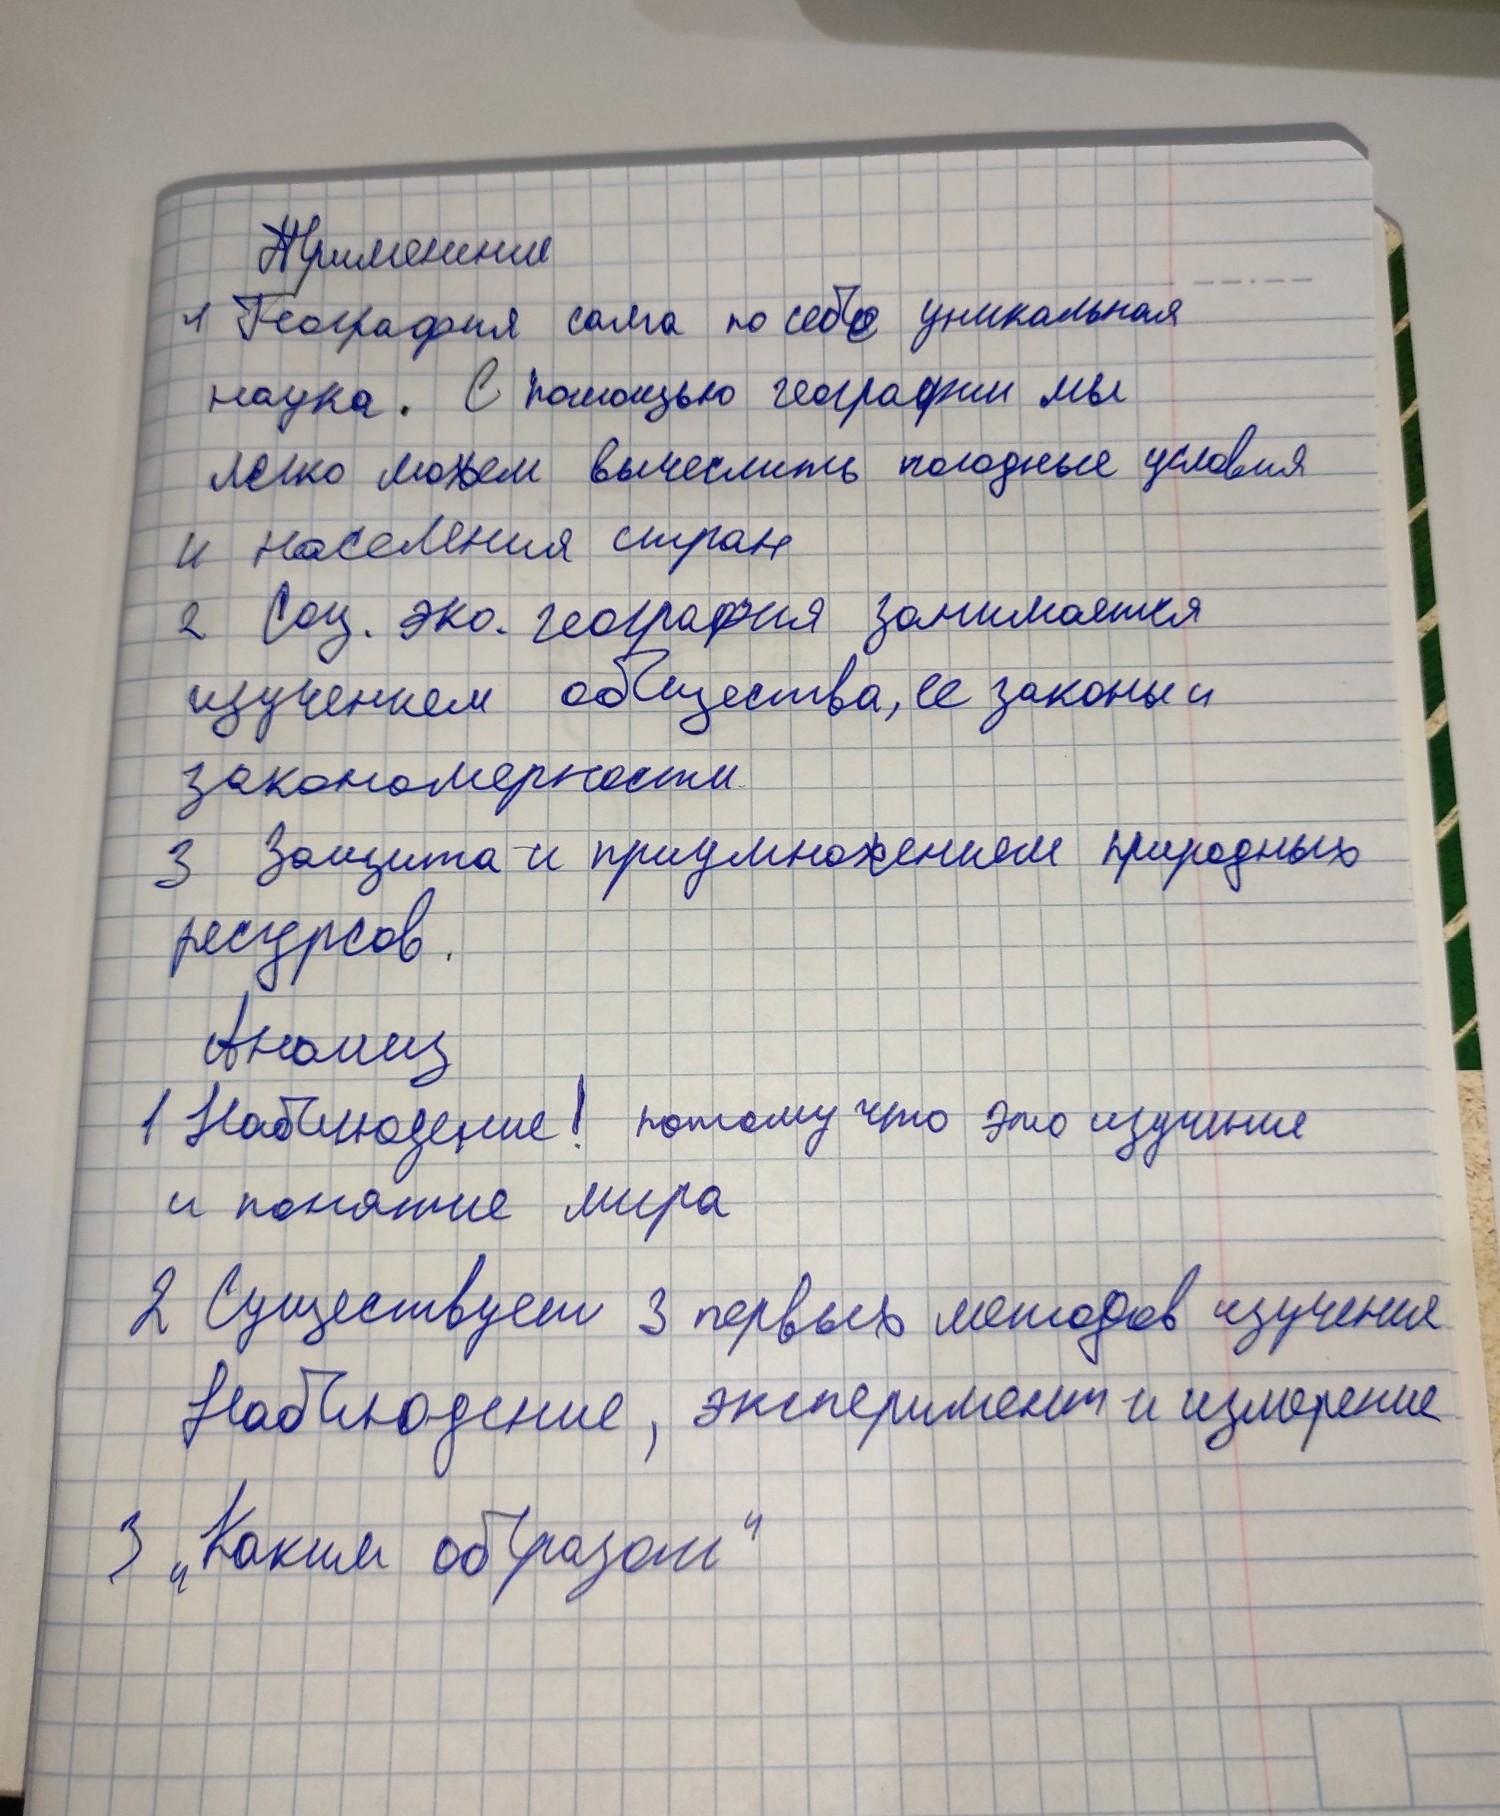 Применение
1 География сама по себе уникальная
наука. С помощью географии мы
легко можем вычеслить погодные условия
и населения стран
2 Соц. эко. география занимается
изучением общества, ее законы и
закономерности
3 Защита и приумножением природных
ресурсов.
Анализ
1 Наблюдение! потому что это изучение
и понятие мира
2 Существует 3 первых методов изучения
Наблюдение, эксперимент и измерение
3 „Каким образом“